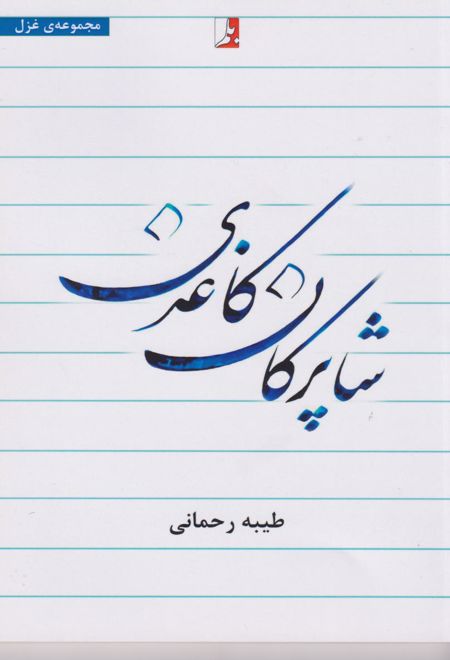 مجموعه‌ی غزل
شاپرکان
کاغذین
طیبه رحمانی